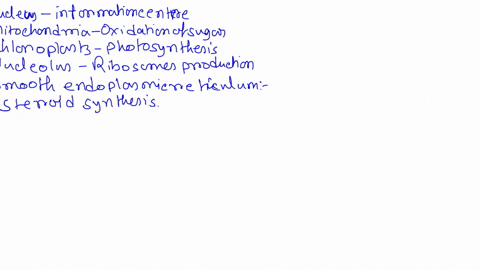 ucleus - information centre
itochondria - Oxidation of sugar
hloroplasts - photosynthesis
ucleolus - Ribosomes production
smooth endoplasmic reticulum:-
steroid synthesis.